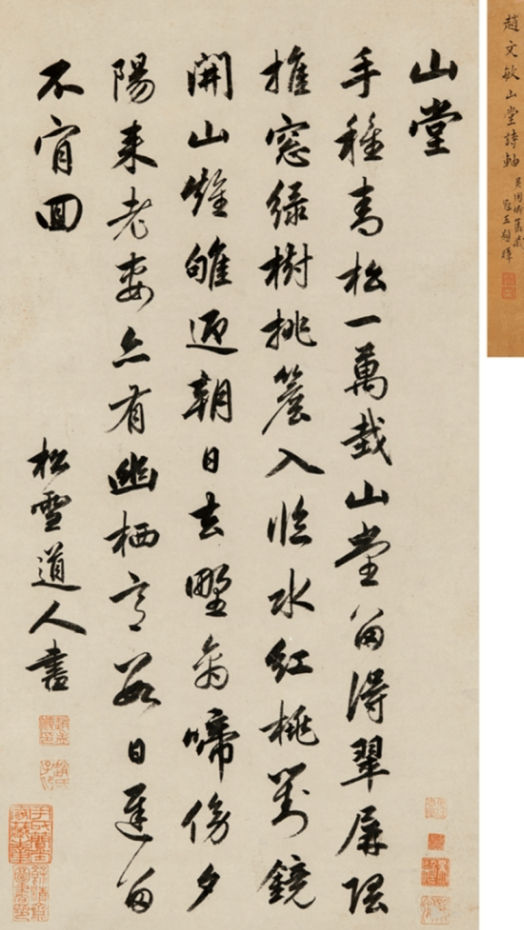 趙文敏山堂詩軸
山堂
手種青松一萬栽山堂留得翠屏隈
推窓緑樹挑簷入臨水紅桃對鏡
開山雉雊迎朝日去野禽啼傍夕
陽来老妻亦有幽栖意數日遲留
不肯回
松雪道人書